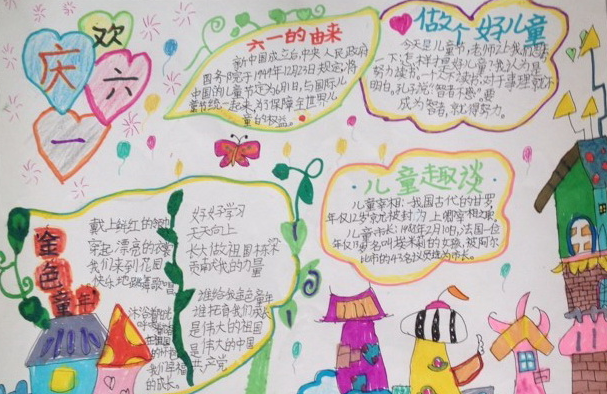 欢
庆六一
六一的由来
新中国成立后,中央人民政府
国务院于1949年12月23日规定,将
中国的儿童节定为6月1日,与国际儿
童节统一起来,为了保障全世界儿
童的权益。
做个好儿童
今天是儿童节,老师
一下,怎样才是好儿童?我认为是
努力读书,一个人不读书,对于事理就不
明白。孔子说:"智者不惑"要
成为智者,就得努力。
儿童趣谈
儿童宰相:我国古代的甘罗,
年仅12岁就被封为上卿宰相之职。
儿童市长:1988年2月10日,法国一位
年仅11岁名叫埃米莉的女孩,被阿尔
比市的43名议员选为市长。
金色童年
戴上鲜红的
穿起漂亮的衣裳
我们来到花园
快乐地跳着跳唱
沐浴着阳光
我们幸福
的成长。
好好学习
天天向上
长大做祖国栋梁
贡献我的力量
谁给我金色童年
谁托着我们成长
是伟大的祖国
是伟大的中国
共产党